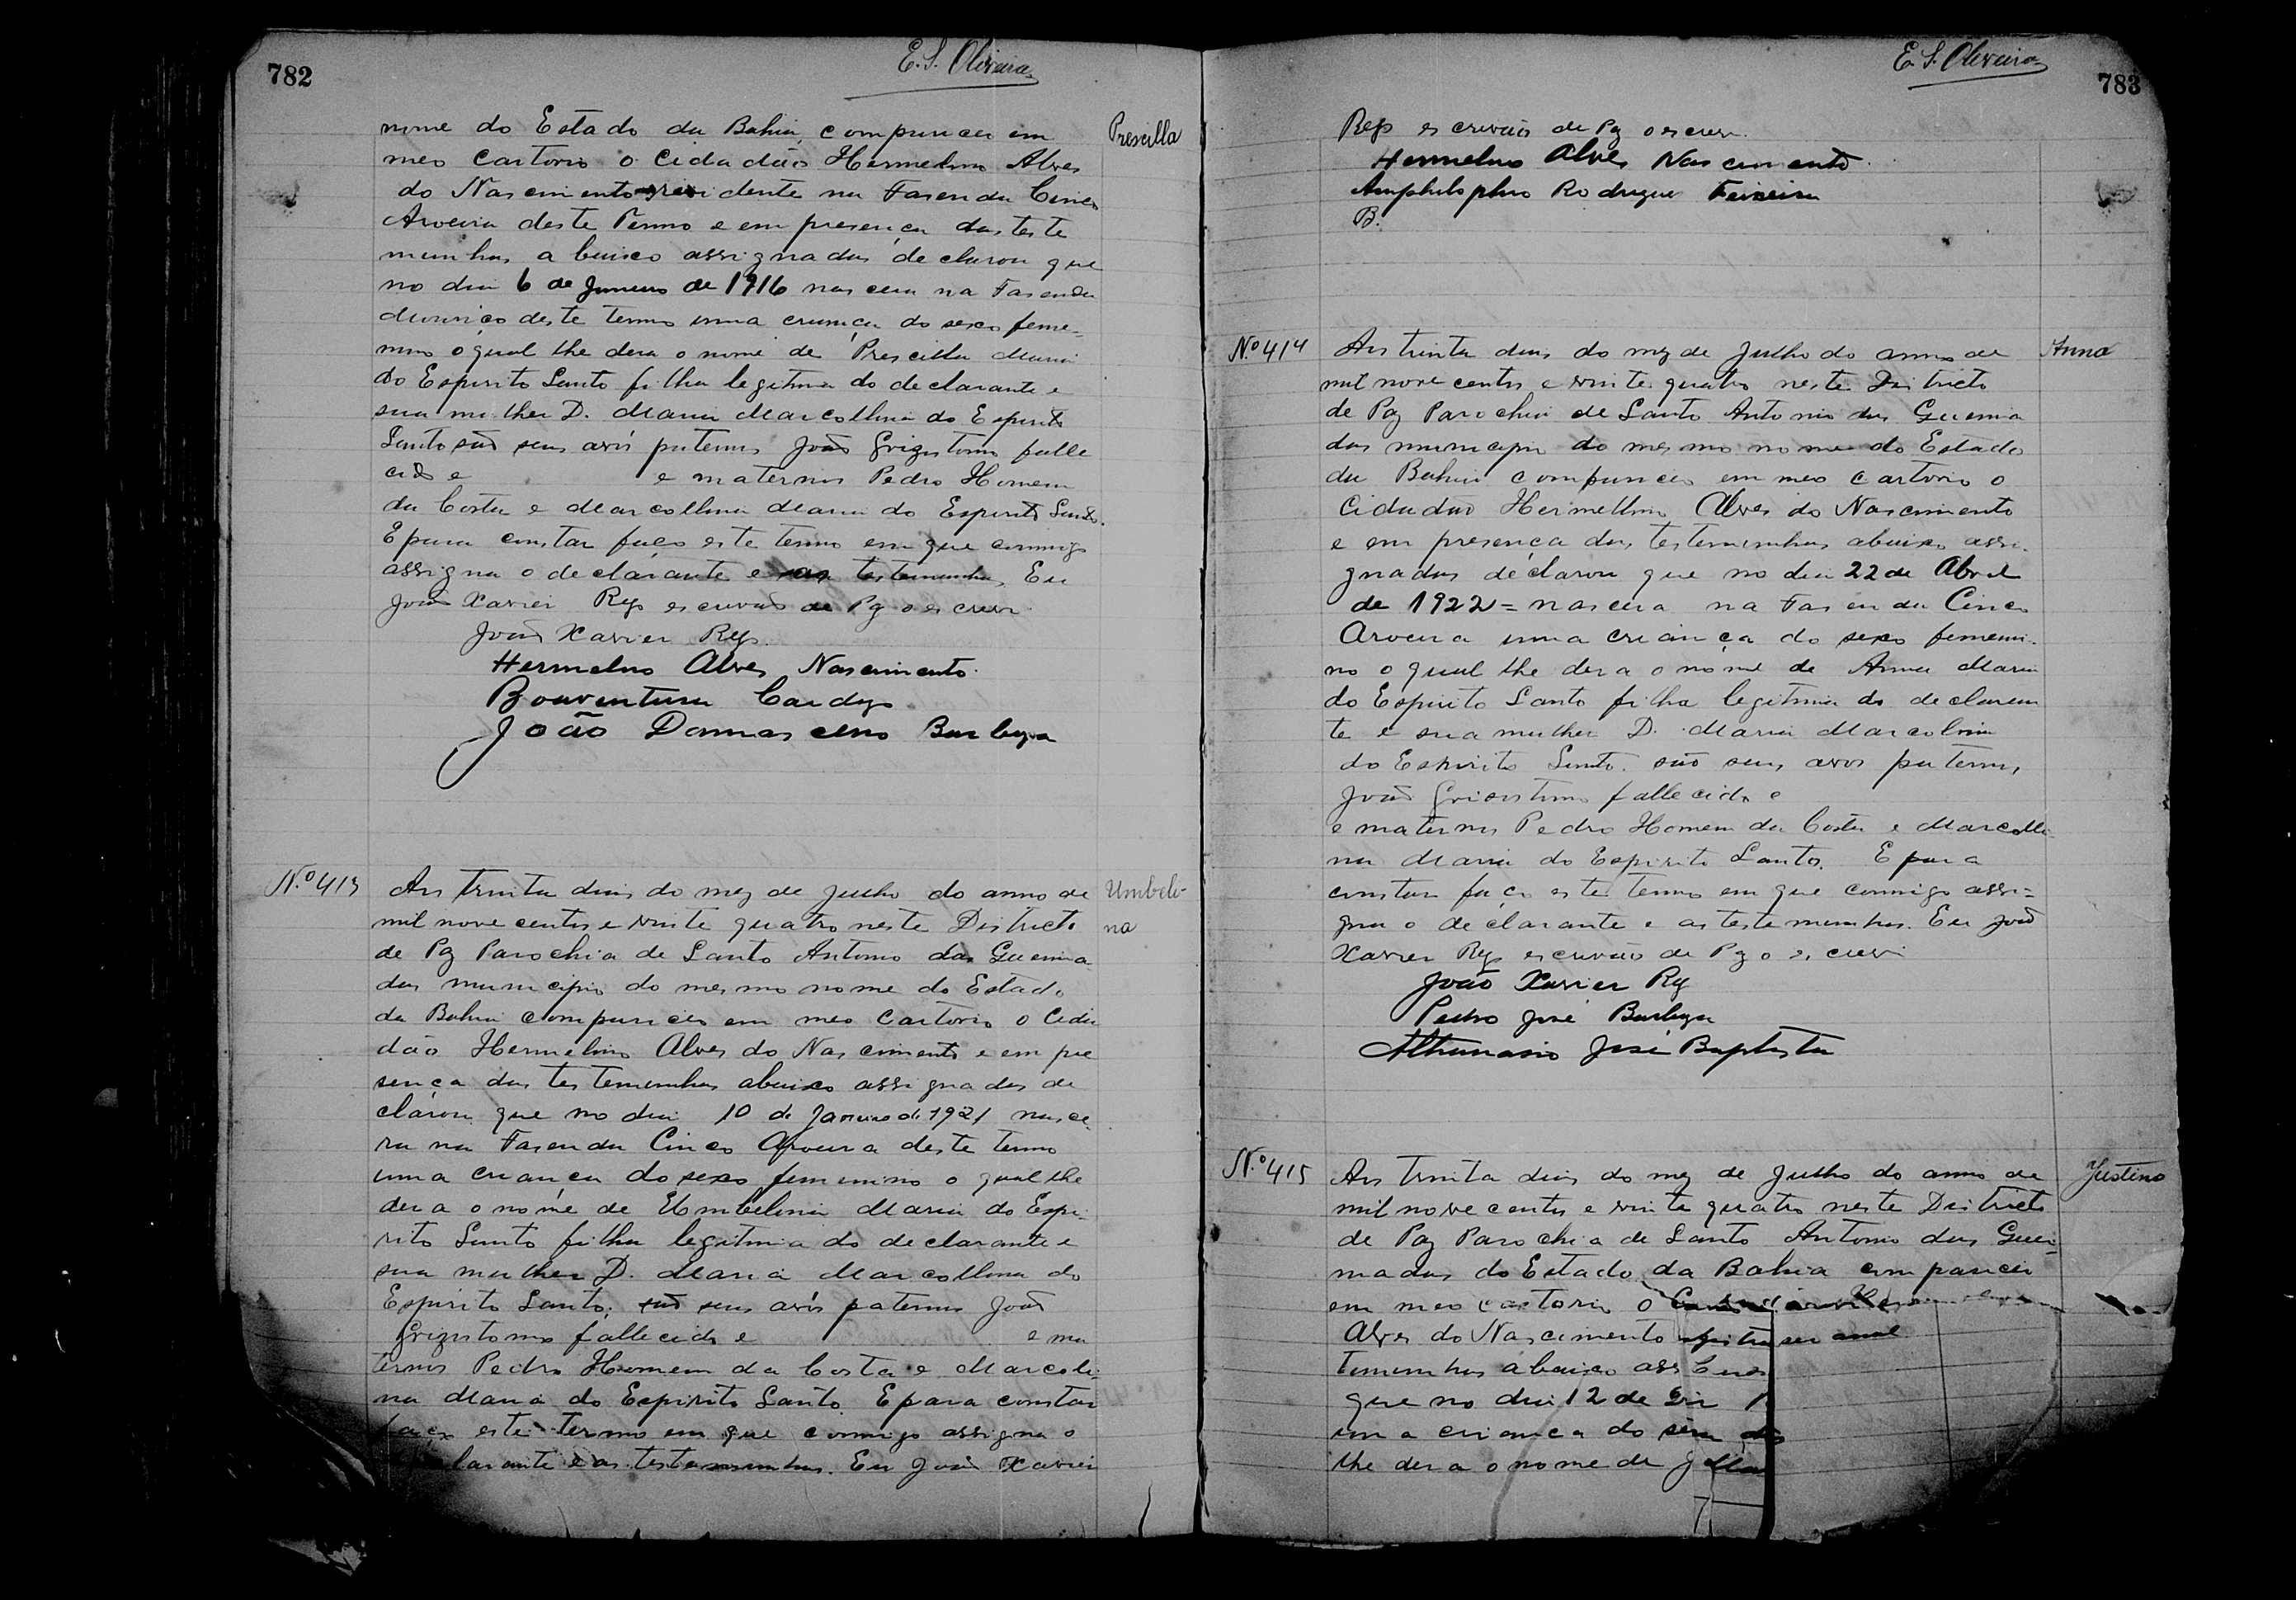 782
E. S. Oliveira
nome do Estado da Bahia, compareceu em
Prescilla
meo Cartorio o Cidadão Hermelino Alves
do Nascimento residente na Fasenda Cinco
Aroeira deste Termo e em presença das teste
munhas abaixo assignadas declarou que
no dia 6 de Janeiro de 1916 nasceu na Fasenda
deste termo uma criança do sexo feme-
nino o qual lhe dera o nome de Prescilla Maria
do Espirito Santo filha legitima do declarante e
sua mulher D. Maria Marcollina do Espirito
Santo são seus avós paternos João Grizostomo falle
cido e e maternos Pedro Homem
da Costa e Marcollina Maria do Espirito Santo.
E para constar faço este termo em que commigo
assigna o declarante e as testemunhas. Eu
João Xavier Reys escrivão de Paz o escrevi
João Xavier Reys.
Hermelino Alves Nascimento.
Boaventura Cardozo
João Damasceno Barboza
Nº 413
Aos trinta dias do mez de Julho do anno de
Umbeli-
mil nove centos e vinte quatro neste Districto
na
de Paz Parochia de Santo Antonio das Queima
das municipio do mesmo nome do Estado
da Bahia compareceo em meo Cartorio o Cida
dão Hermelino Alves do Nascimento e em pre
sença das testemunhas abaixo assignadas de
clarou que no dia 10 de Janeiro de 1921 nasce
ra na Fasenda Cinco Aroeira deste termo
uma criança do sexo femenino o qual lhe
dera o nome de Umbelina Maria do Espi-
rito Santo filha legitima do declarante e
sua mulher D. Maria Marcollina do
Espirito Santo. são seus avós paternos João
Grizostomo fallecido e e ma
ternos Pedro Homem da Costa e Marcoli-
na Maria do Espirito Santo. E para constar
faço este termo em que commigo assigna o
declarante e as testemunhas. Eu João Xavier
E. S. Oliveira
783
Reys escrivão de Paz o escrevi.
Hermelino Alves Nascimento.
Amphilophio Rodrigues Teixeira
B.
Nº 414
Aos trinta dias do mez de Julho do anno de
Anna
mil nove centos e vinte quatro neste Districto
de Paz Parochia de Santo Antonio das Queima
das municipio do mesmo nome do Estado
da Bahia compareceo em meo cartorio o
Cidadão Hermellino Alves do Nascimento
e em presença das testemunhas abaixo assi-
gnadas declarou que no dia 22 de Abril
de 1922 = nascera na Fasenda Cinco
Aroeira uma criança do sexo femeni-
no o qual lhe dera o nome de Anna Maria
do Espirito Santo filha legitima do declaran
te e sua mulher D. Maria Marcolina
do Espirito Santo. são seus avos paternos
João Grisostimo fallecido e
e maternos Pedro Homem da Costa e Marcolli
na Maria do Espirito Santo. E para
constar faço este termo em que commigo assi=
gna o declarante e as testemunhas. Eu João
Xavier Reys escrivão de Paz o escrevi
João Xavier Reys
Pedro José Barboza
Athanasio José Baptista
Nº 415
Aos trinta dias do mez de Julho do anno de
Justino
mil nove centos e vinte quatro neste Districto
de Paz Parochia de Santo Antonio das Quei-
madas do Estado da Bahia compareceu
em meo cartorio o
Alves do Nascimento
temunhas abaixo ass
que no dia 12 de
uma criança do
lhe dera o nome de J